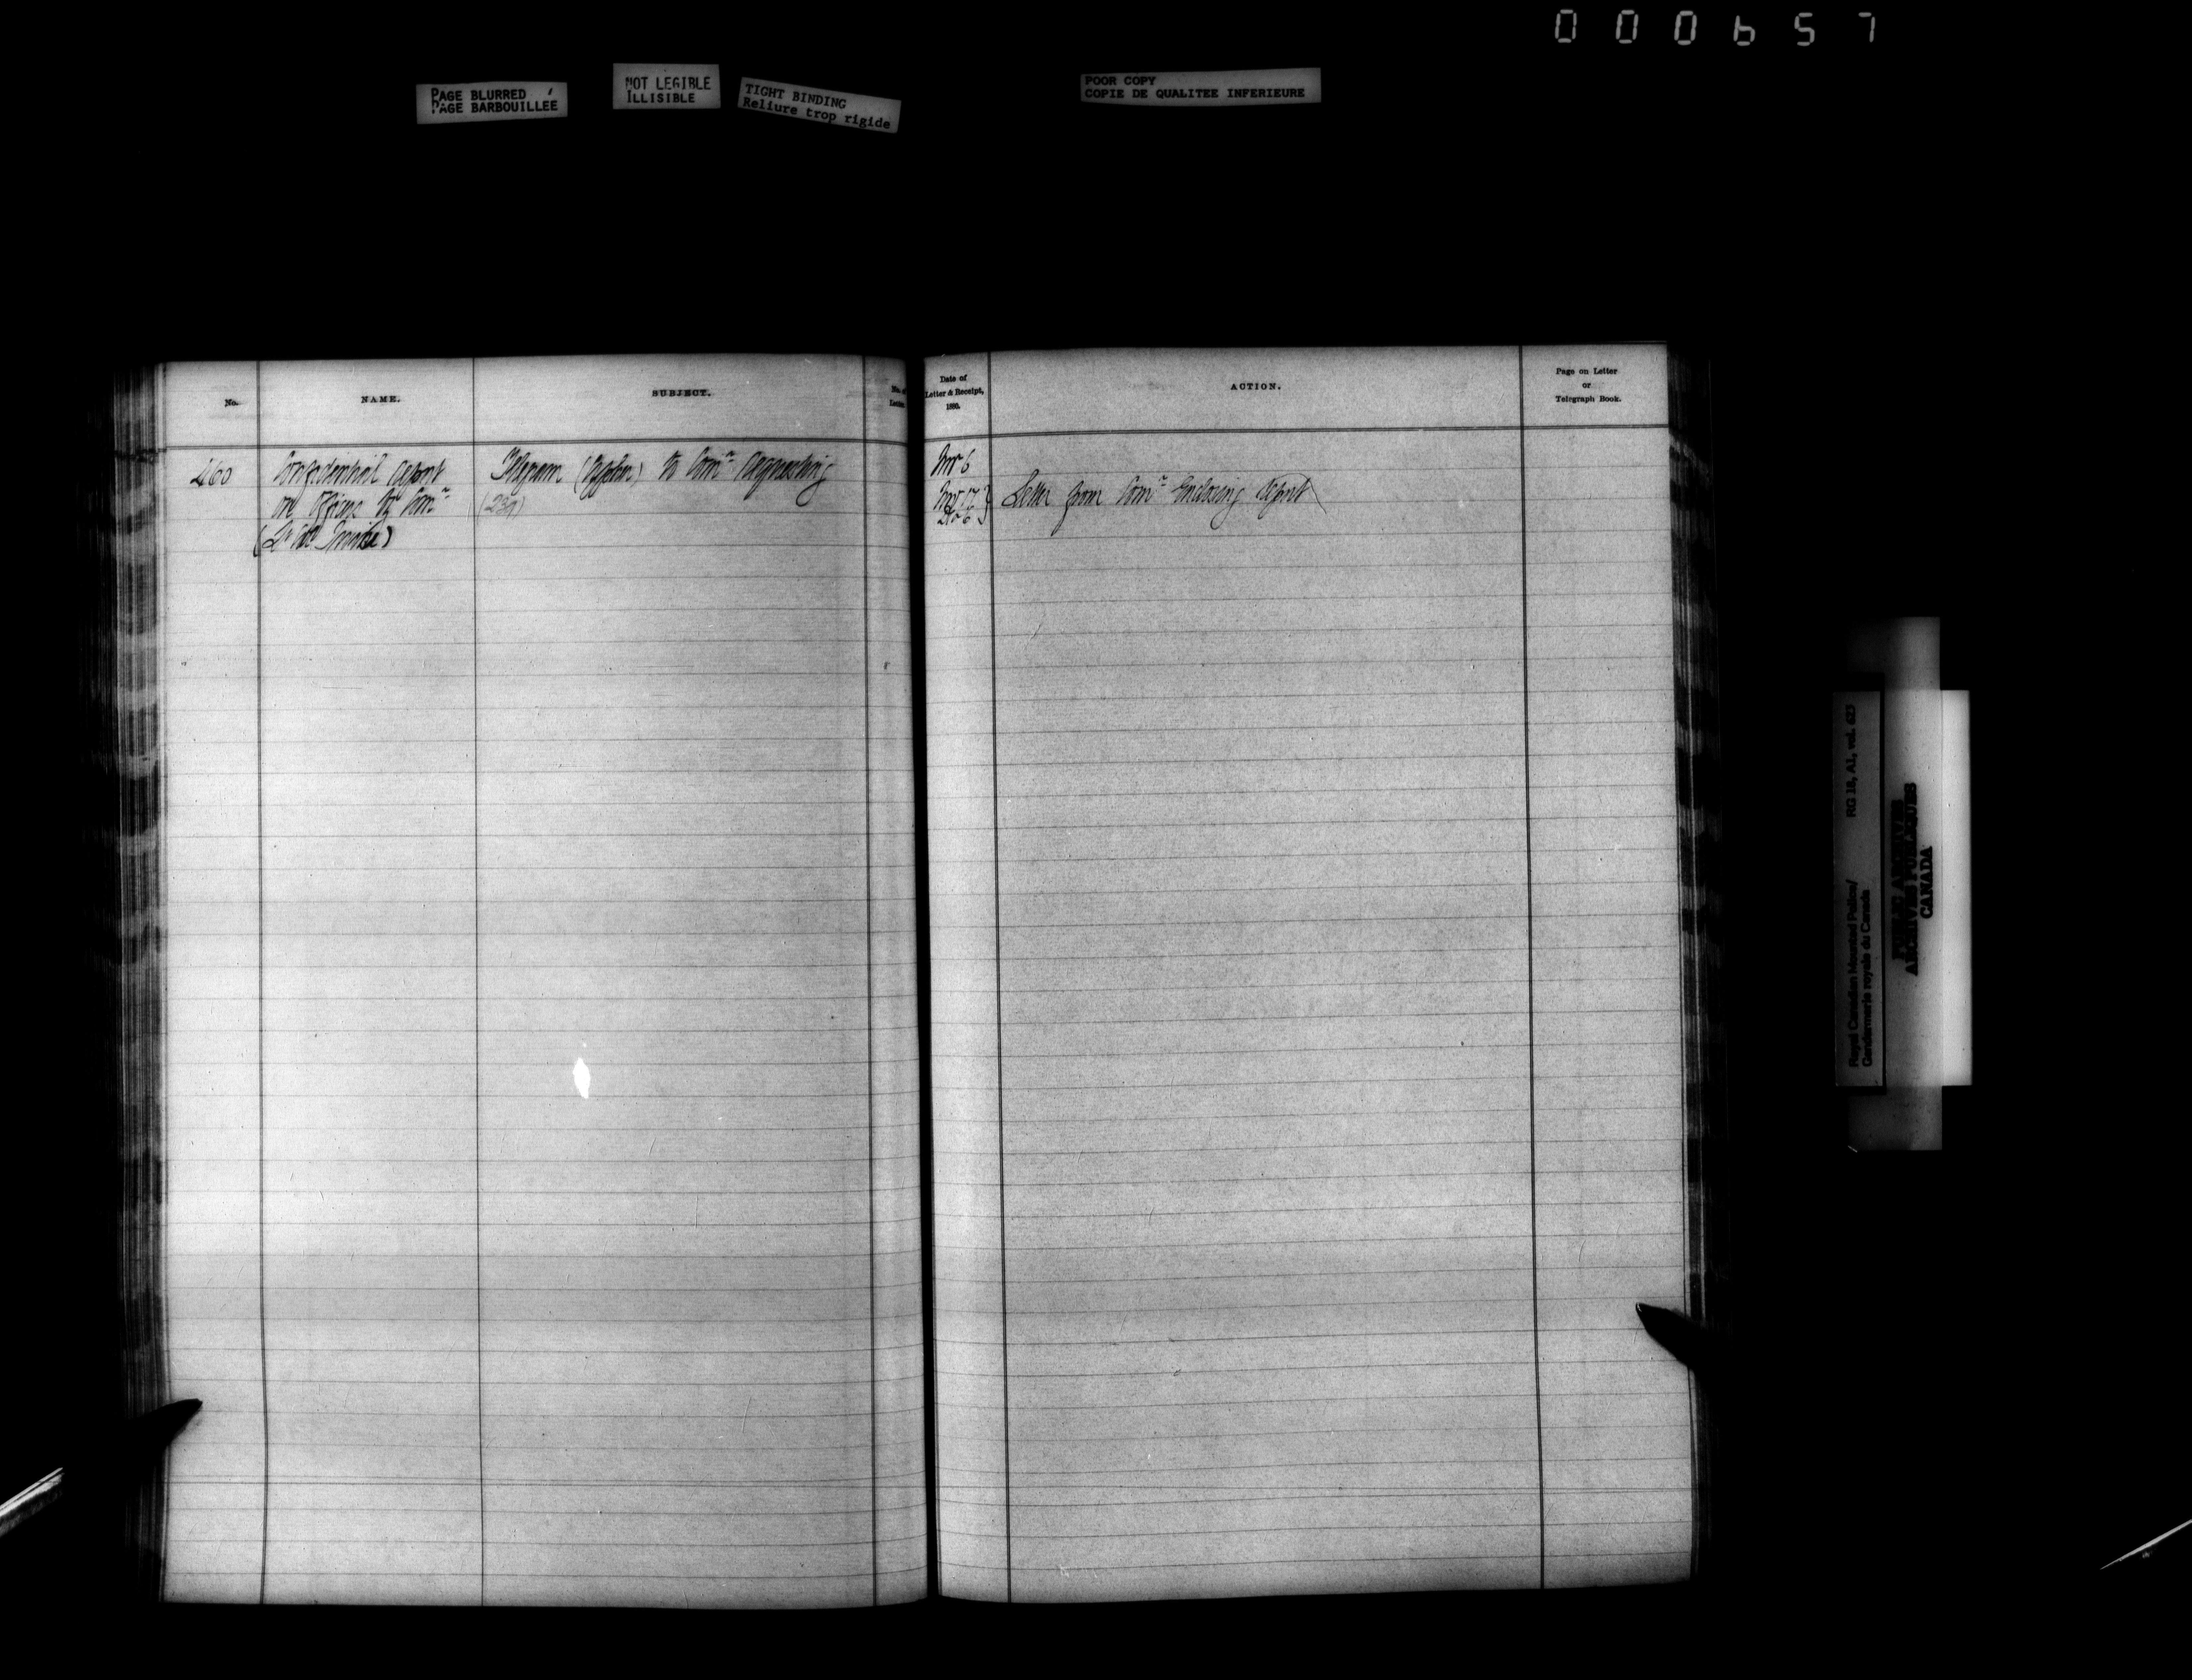 000657
PAGE BLURRED
PAGE BARBOUILLEE
NOT LEGIBLE
ILLISIBLE
TIGHT BINDING
Reliure trop rigide
POOR COPY
COPIE DE QUALITEE INFERIEURE
No.
NAME.
SUBJECT.
No. of
Letter.
Date of
Letter & Receipt,
1880.
ACTION.
Page on Letter
or
Telegraph Book.
460
Confidential report
on Officers by Comr
Telegram (Cypher) to Comr requesting
Nov 6
Nov 17
Dec 6
Letter from Comr Enclosing report
Royal Canadian Mounted Police/
Gendarmerie royale du Canada
RG 18, A1, vol. 623
PUBLIC ARCHIVES
ARCHIVES PUBLIQUES
CANADA